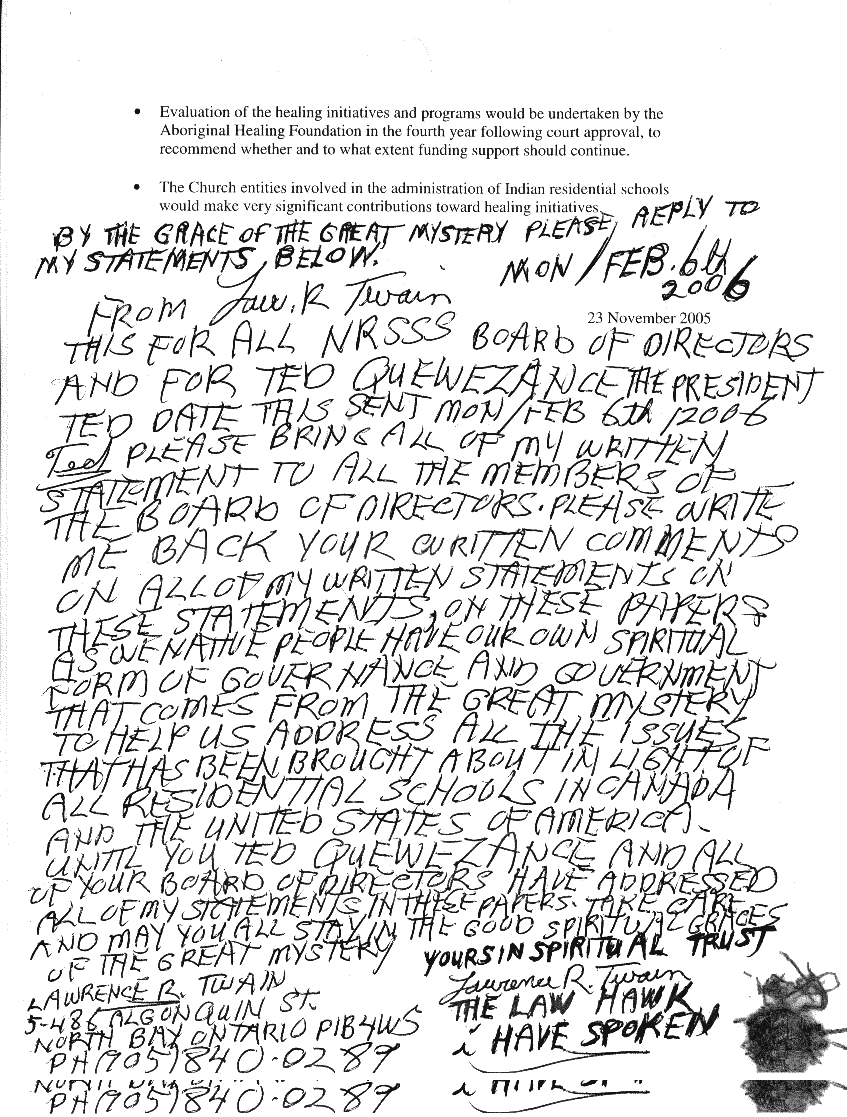 • Evaluation of the healing initiatives and programs would be undertaken by the
Aboriginal Healing Foundation in the fourth year following court approval, to
recommend whether and to what extent funding support should continue.
• The Church entities involved in the administration of Indian residential schools
would make very significant contributions toward healing initiatives.
BY THE GRACE OF THE GREAT MYSTERY PLEASE, REPLY TO
MY STATEMENTS, BELOW.
MON/FEB. 6th
2006
FROM Law. R Twain
23 November 2005
THIS FOR ALL NRSSS BOARD OF DIRECTORS
AND FOR TED QUEWEZANCE THE PRESIDENT
TED DATE THIS SENT MON/FEB 6th/2006
Ted PLEASE BRING ALL OF MY WRITTEN
STATEMENT TO ALL THE MEMBERS OF
THE BOARD OF DIRECTORS. PLEASE WRITE
ME BACK YOUR WRITTEN COMMENTS
ON ALL OF MY WRITTEN STATEMENTS ON
THESE STATEMENTS, ON THESE PAPERS
AS WE NATIVE PEOPLE HAVE OUR OWN SPIRITUAL
FORM OF GOVERNANCE AND GOVERNMENT
THAT COMES FROM THE GREAT MYSTERY
TO HELP US ADDRESS ALL THE ISSUES
THAT HAS BEEN BROUGHT ABOUT IN LIGHT OF
ALL RESIDENTIAL SCHOOLS IN CANADA
AND THE UNITED STATES OF AMERICA.
UNTIL YOU TED QUEWEZANCE AND ALL
OF YOUR BOARD OF DIRECTORS HAVE ADDRESSED
ALL OF MY STATEMENTS IN THESE PAPERS. TAKE CARE
AND MAY YOU ALL STAY IN THE GOOD SPIRITUAL GRACES
OF THE GREAT MYSTERY
YOURS IN SPIRITUAL TRUST
LAWRENCE R. TWAIN
Lawrence R. Twain
5-486 ALGONQUIN ST.
THE LAW HAWK
NORTH BAY ONTARIO P1B4W5
i HAVE SPOKEN
PH(705)840-0289
PH(705)840-0289